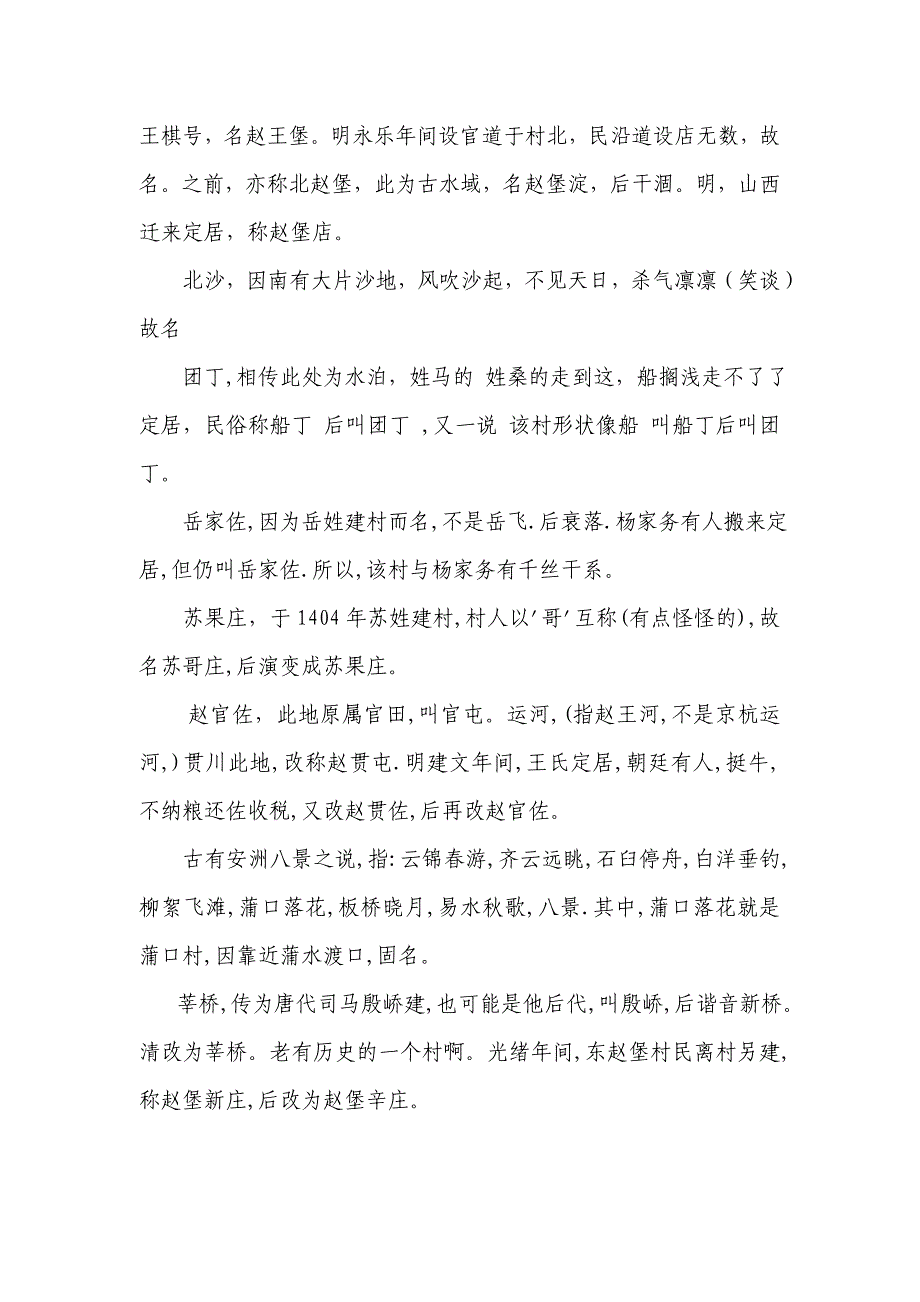 王棋号，名赵王堡。明永乐年间设官道于村北，民沿道设店无数，故
名。之前，亦称北赵堡，此为古水域，名赵堡淀，后干涸。明，山西
迁来定居，称赵堡店。
北沙，因南有大片沙地，风吹沙起，不见天日，杀气凛凛（笑谈）
故名
团丁,相传此处为水泊，姓马的 姓桑的走到这，船搁浅走不了了
定居，民俗称船丁 后叫团丁 ,又一说 该村形状像船 叫船丁后叫团
丁。
岳家佐,因为岳姓建村而名,不是岳飞.后衰落.杨家务有人搬来定
居,但仍叫岳家佐.所以,该村与杨家务有千丝干系。
苏果庄，于1404年苏姓建村,村人以'哥'互称(有点怪怪的),故
名苏哥庄,后演变成苏果庄。
赵官佐，此地原属官田,叫官屯。运河,(指赵王河,不是京杭运
河,)贯川此地,改称赵贯屯.明建文年间,王氏定居,朝廷有人,挺牛,
不纳粮还佐收税,又改赵贯佐,后再改赵官佐。
古有安洲八景之说,指:云锦春游,齐云远眺,石臼停舟,白洋垂钓,
柳絮飞滩,蒲口落花,板桥晓月,易水秋歌,八景.其中,蒲口落花就是
蒲口村,因靠近蒲水渡口,固名。
莘桥,传为唐代司马殷峤建,也可能是他后代,叫殷峤,后谐音新桥。
清改为莘桥。老有历史的一个村啊。光绪年间,东赵堡村民离村另建,
称赵堡新庄,后改为赵堡辛庄。